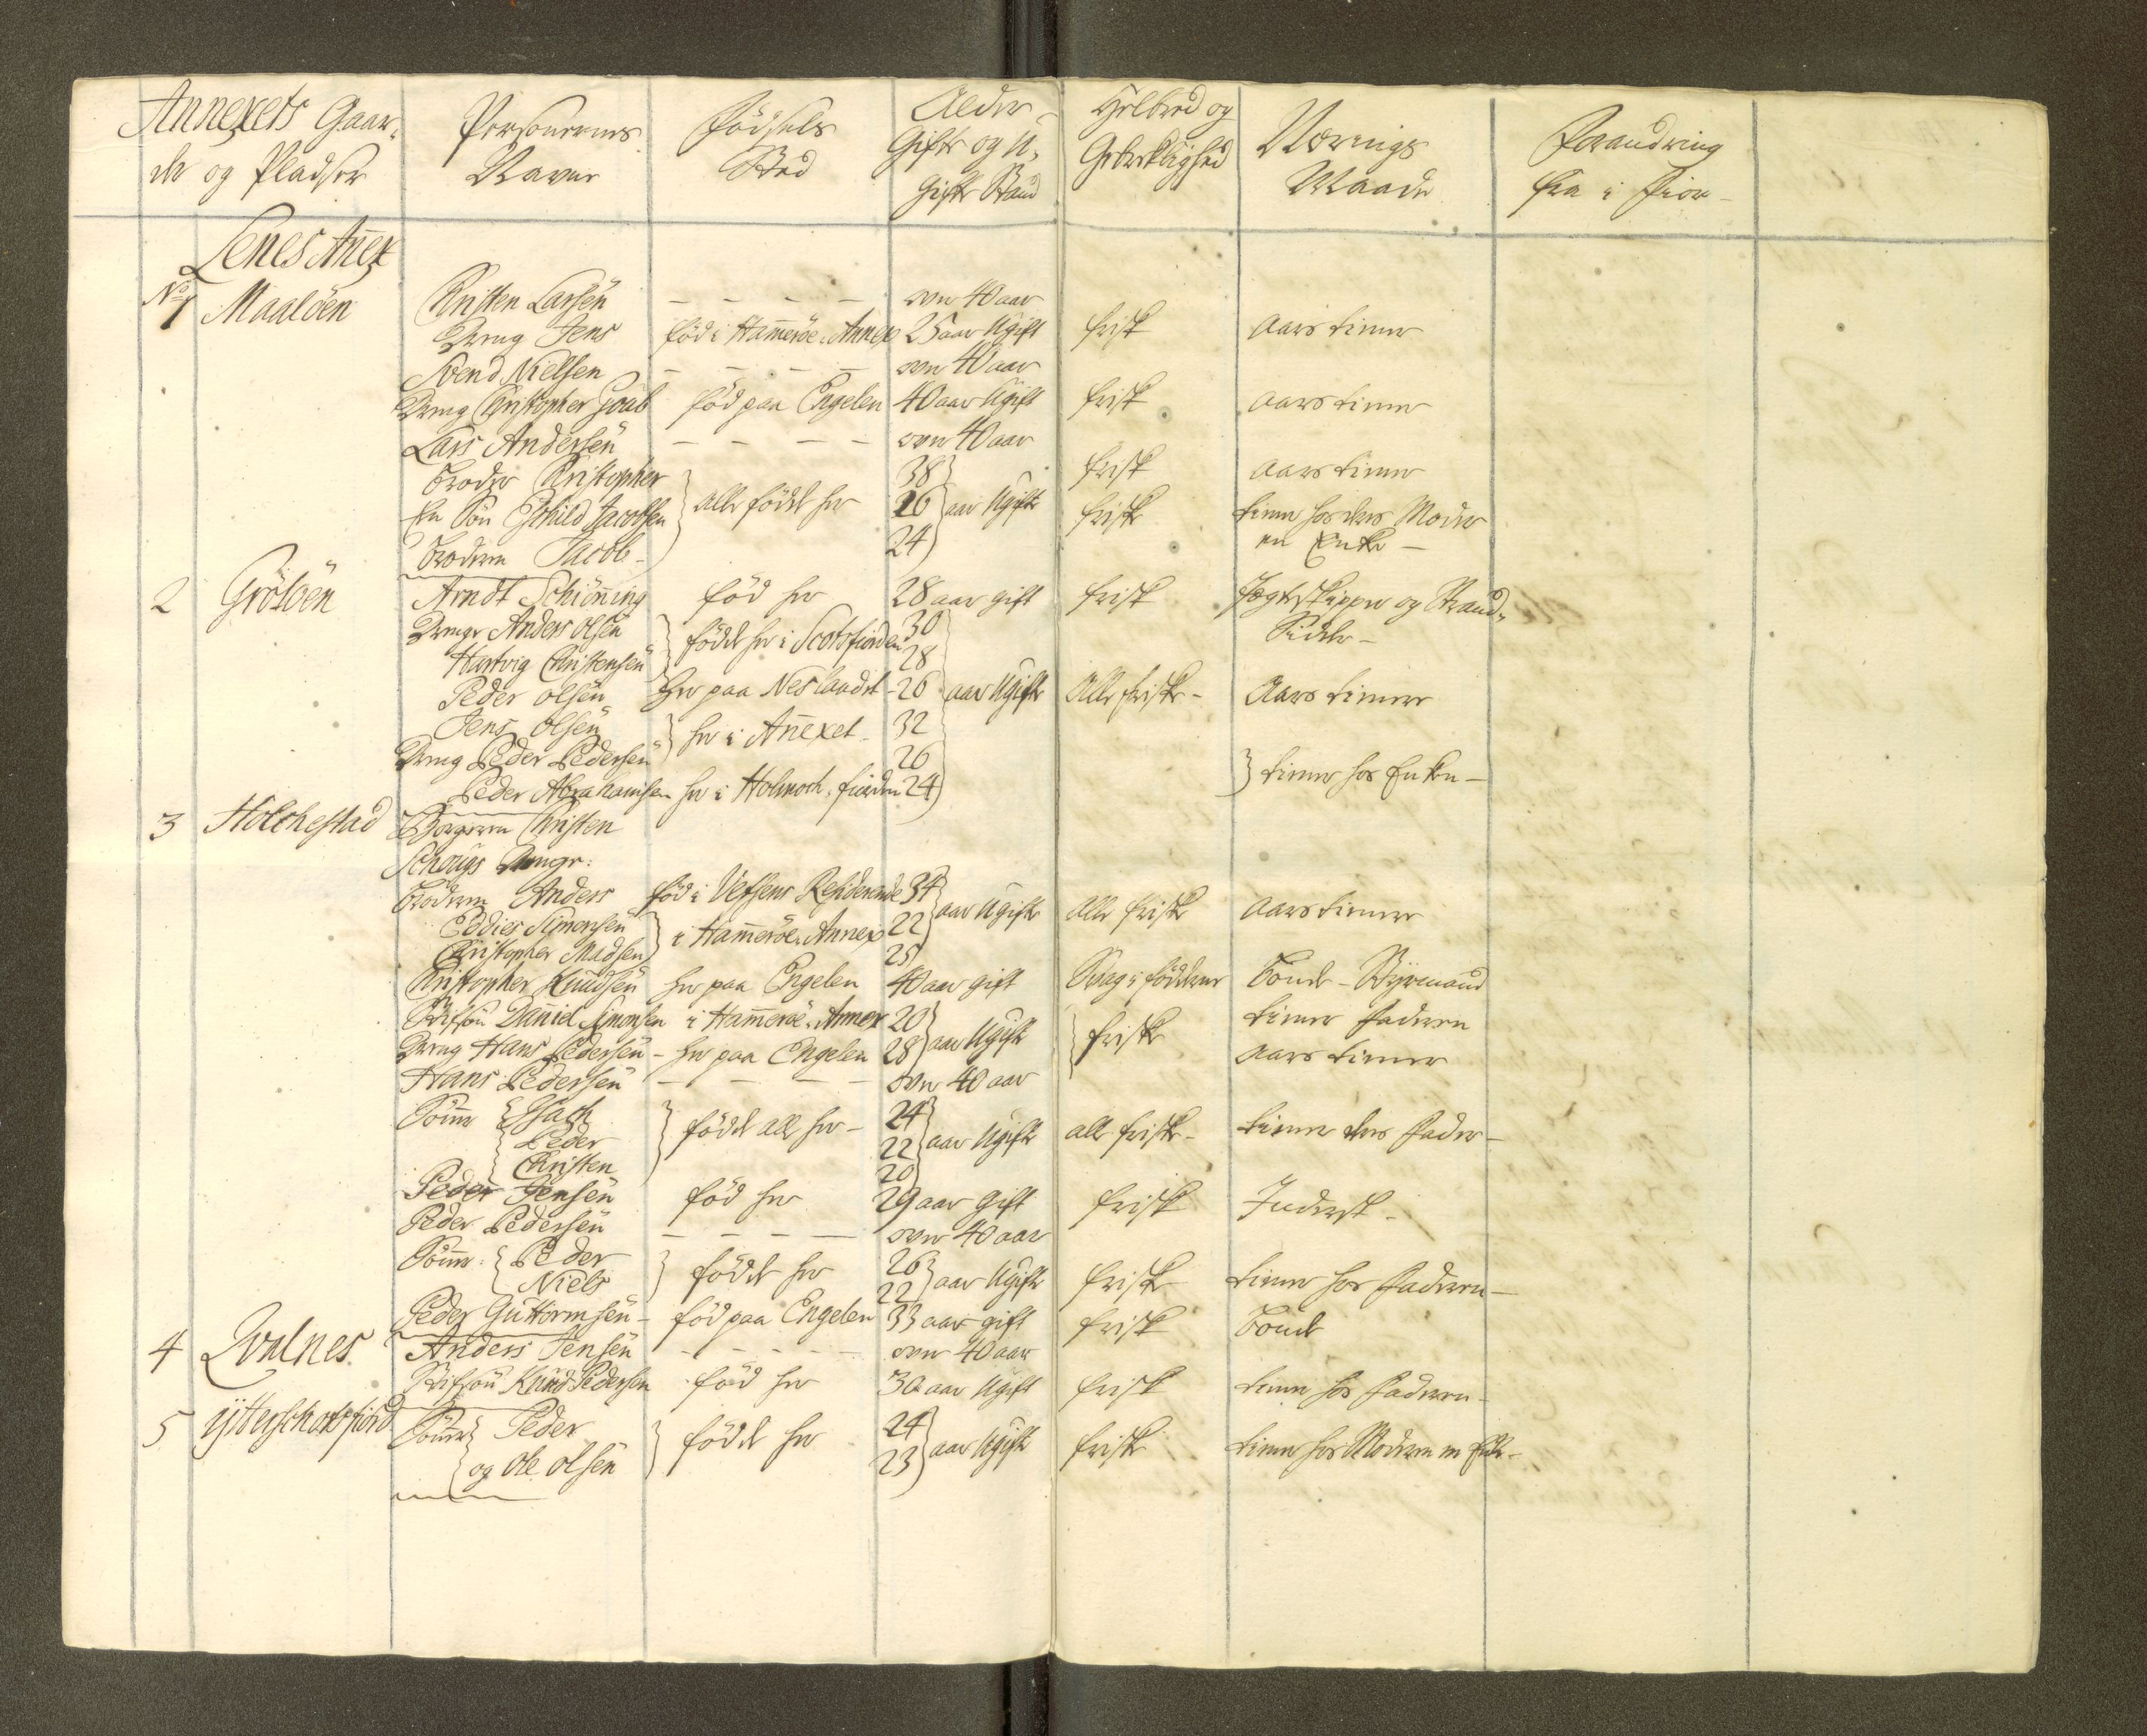 Annexets Gaar-
de og Pladser
Personernes
Navne
Fødsels
Sted
Alder
Gifte og U-
gifte Stand
Helbred og
Gebreklighed
Nærings
Maade
Forandring
fra i Fior
Lenes Añex
No 1 Maalöen Christen Larsen — — — — over 40 aar
Dreng Jens föd i Ham̃eröe Annex 25 aar Ugift frisk aars tienner
Svend Nielsen — — — — over 40 aar
Dreng Christopher Joab föd paa Engelen 40 aar Ugift frisk aars tienner
Lars Andersen — — — — over 40 aar
Broder Christopher 38 frisk aars tienner
En Sön Eschild Jacobsen alle födde her 26 aar Ugifte friske tienner hos deres Moder
Broderen Jacob 24 en Enke —
2 Grötöen Arndt Schiöñing föd her 28 aar gift frisk Jægteskipper og Strand-
Sidder —
Drenge Anders Olsen födde her i Scotsfiorden 30
Hartvig Christensen 28
Peder Olsen her paa Neslandet 26 aar Ugifte Alle friske - Aars tiennere
Jens Olsen her i Añexet 32
Dreng Peder Pedersen 26 tienner hos Enken —
Peder Abrahamsen her i Holmoch. fiorden 24
3 Holchestad Borgeren Christen
Schougs Drenge:
Broderen Anders föd i Vefsens Residerende 34
Eddies Simonsen i Ham̃eröe Annex 22 aar Ugifte Alle friske aars tiennere
Christopher Madsen 25
Christopher Knudsen her paa Engelen 40 aar gift Svag i födderne Bonde - Styrmand
Stifsön Dañiel Simonsen i Ham̃eröe Annex 20 tienner Faderen
Dreng Hans Pedersen - her paa Engelen 28 aar Ugifte friske aars tienner
Hans Pedersen — — — over 40 aar
Söñer Isach 24
Peder födde alle her - 22 aar Ugifte alle friske - tienner deres Fader —
Christen 20
Peder Jensen föd her 29 aar Gift frisk Inderst -
Peder Pedersen — — — — over 40 aar
Söñer: Peder 26
Niels födde her 22 aar Ugifte friske tienner hos Faderen —
Peder Guttormsen - föd paa Engelen 33 aar gift frisk Bonde
4 Qvalnes Anders Jensen — — — — over 40 aar
Stifsön Knud Pedersen föd her 30 aar Ugift frisk tienner hos Faderen -
5 ijtterschotsfiord Söñer Peder födde her 24 aar Ugifte friske tienner hos Moderen en Enke -
og Ole Olsen 23